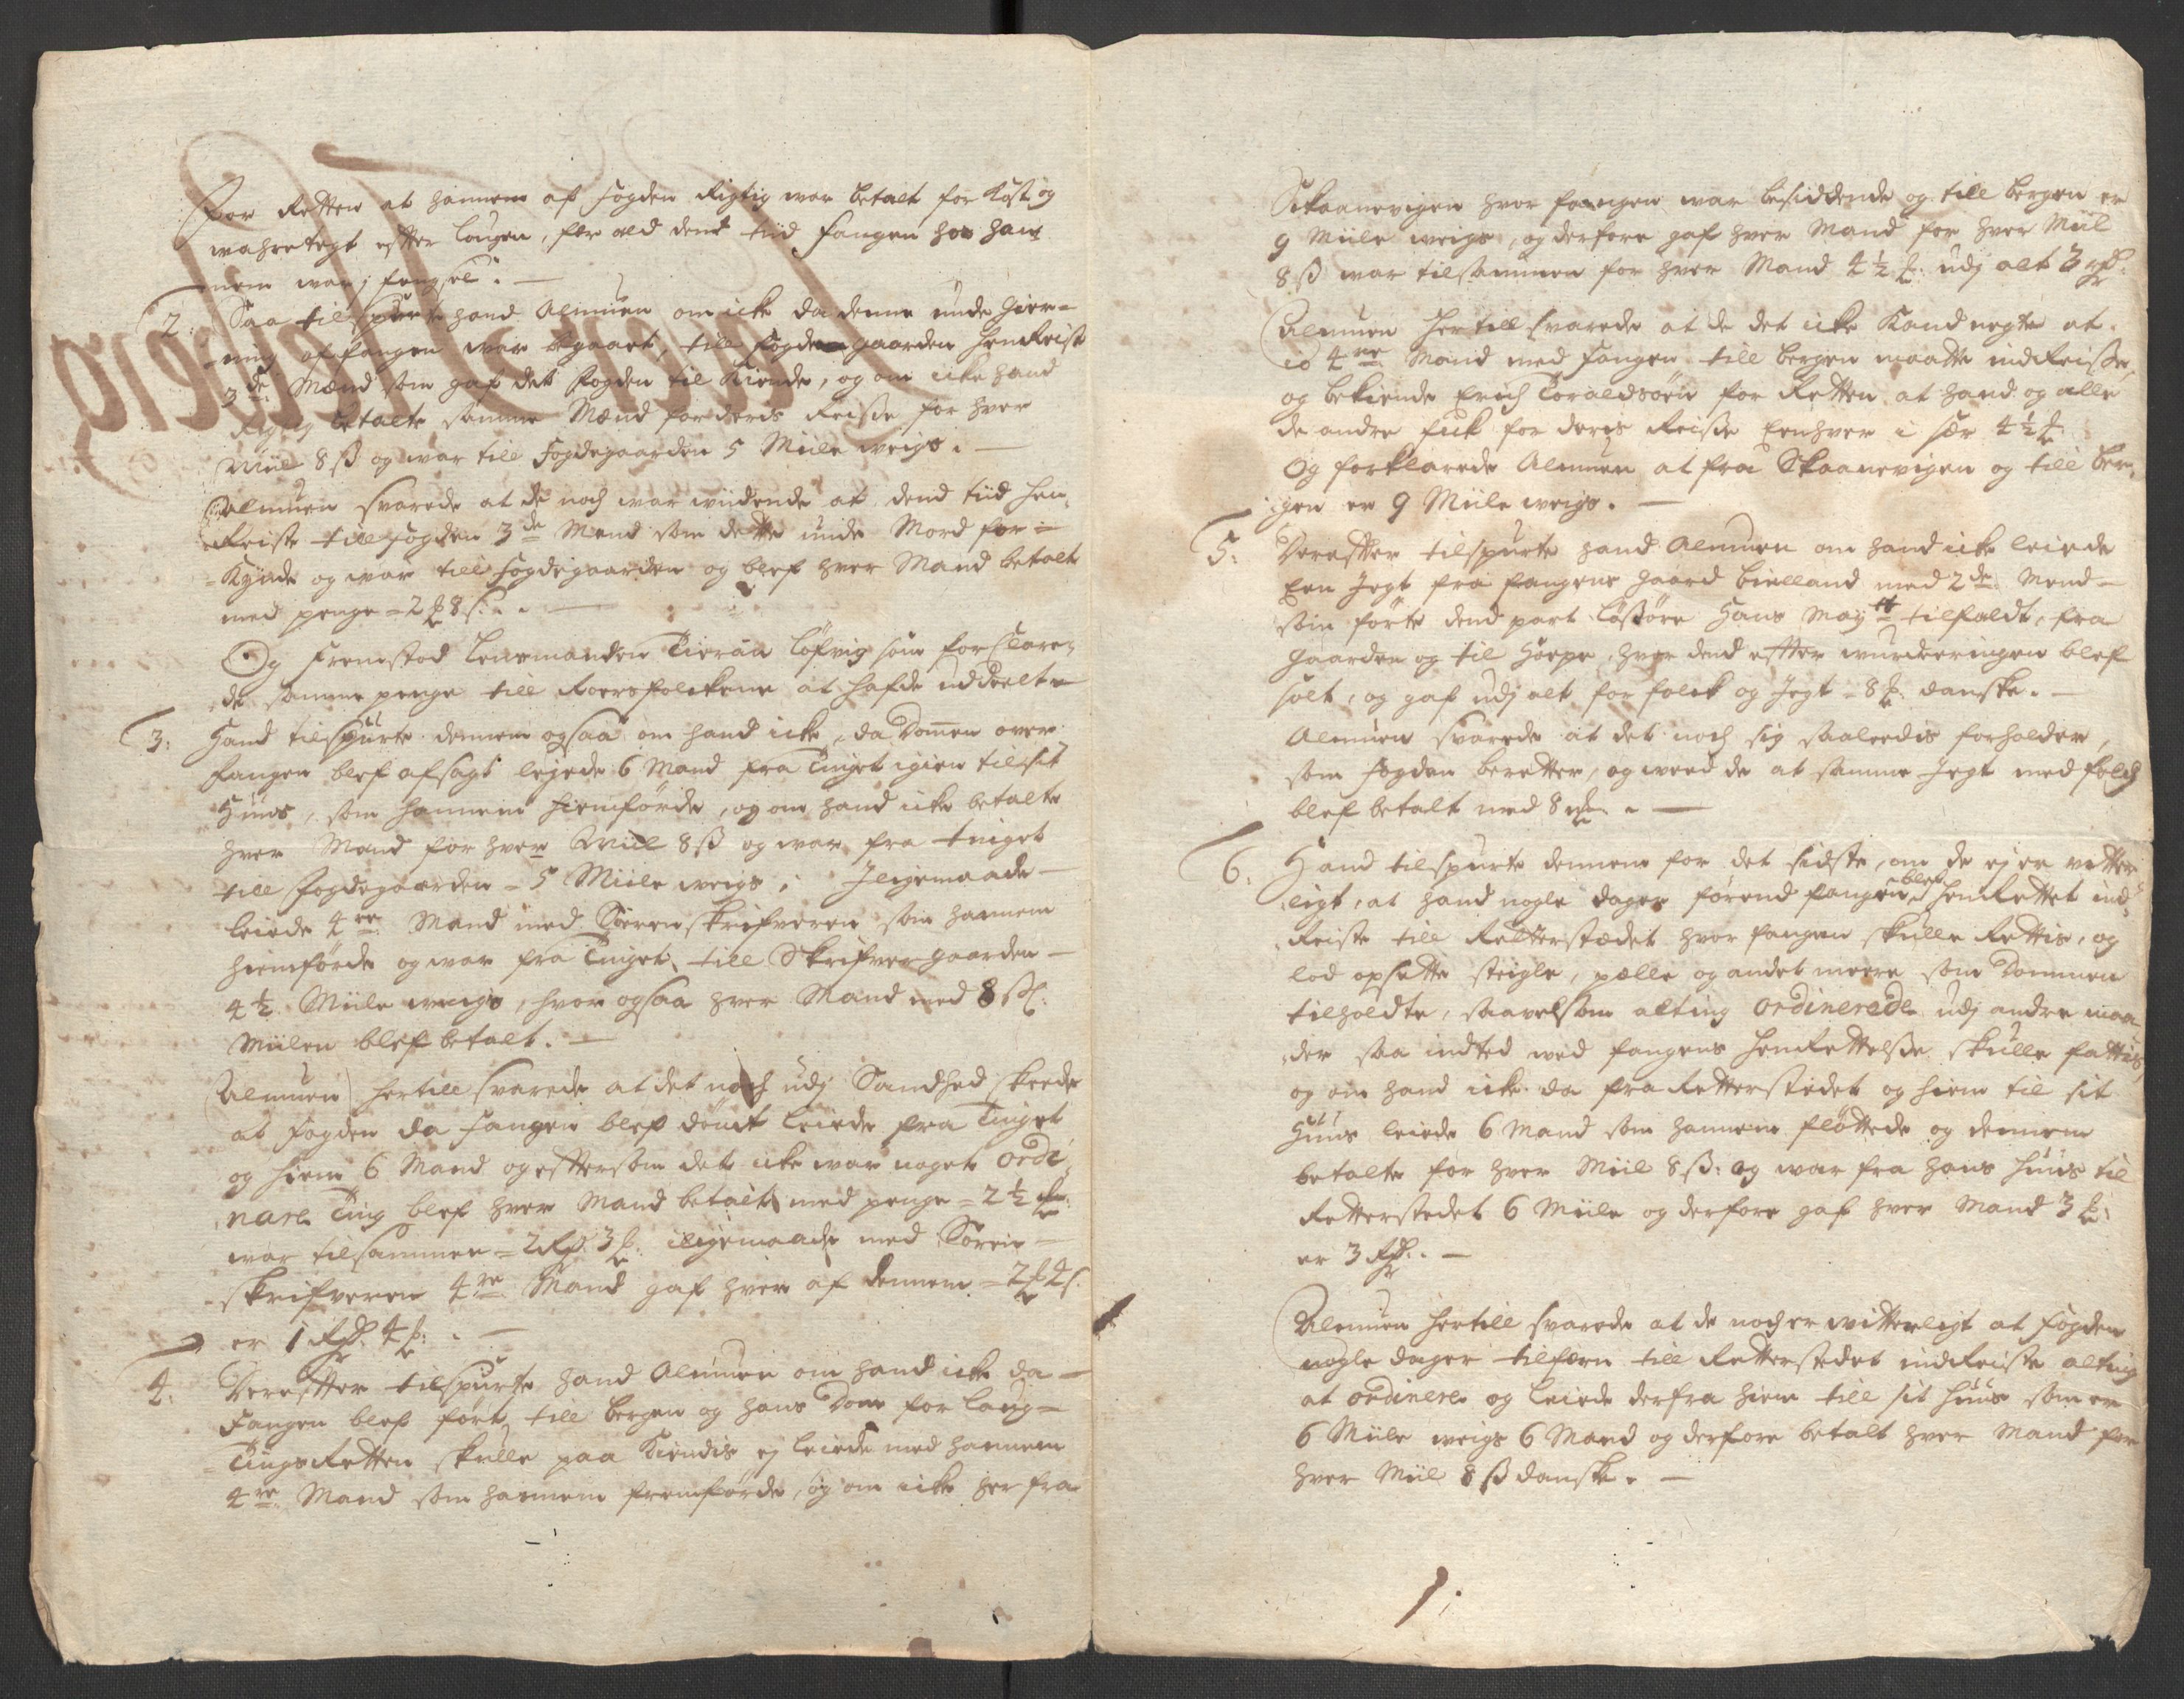 for Retten at hannem af fogden Rigtig war betalt for Kost og
wahretegt efter lougen, for ald dend tiid fangen hos han
nem war i fengsel.
2: Saa tilspurte hand Almuen om icke da denne unde Gier-
ning af fangen war begaaet, till fogdengaarden henreiste
3de Mænd som gaf det fogden til Kiende, og om icke hand
Rigtig betalte samme Mænd for deris Reise for hver
Miil 8 ß og war till fogdegaarden 5 Miile weigs.
Almuen svarede at de noch war wiidende at dend tiid hen-
Reiste till fogden 3de Mend som dette unde Mord for-
Kynde og war till fogdegaarden og blef hver Mand betalt
med penge = 2 ℔ 8 s:
Og Fremstod Lensmanden Tieran Løfvig som forclare-
de samme penge till Roersfolckene at hafde uddeelte
3: Hand tilspurte dennem ogsaa om hand icke, da Domen over
fangen blef afsagt leyede 6 Mand fra Tinget igien til sit
Huus, som hannem hiemførde, og om hand icke betalte
hver Mand for hver Miil 8 ß og war fra tinget
till fogdegaarden = 5 Miile weigs, i Ligemaade
leiede 4re Mand med Sorenskrifveren som hannem
hiemførde og war fra Tinget till Skrifvergaarden
4½ Miile weigs, hvor ogsaa hver Mand med 8 ß
Miilen blef betalt.
Almuen hertill svarede at det noch udj Sandhed skeede
at fogden da fangen blef dømt leiede fra Tinget
og hiem 6 Mand og eftersom det icke war noget ordi-
nare Ting blef hver Mand betalt med penge = 2½ ℔
war tilsammen = 2 Rd 3 ℔: iligemaade med Soren-
skrifveren 4re Mand gaf hver af dennem = 2 ℔ 4 s.
er 1 Rd 4 ℔:
4: Derefter tilspurte hand Almuen om hand icke da
fangen blef ført till Bergen og hans Dom for Laug-
Tings Retten skulle paa Kiendis ej leiede med hannem
4re Mand som hannem fremførde, og om icke her fra
Skaanevigen hvor fangen war besiddende og till bergen er
9 Miile weigs, og derfore gaf hver Mand for hver Miil
8 ß war tilsammen for hver Mand 4½ ℔: udj alt 3 Rd:
Almuen hertill svarede at de det icke Kand negte at
io 4re Mand med fangen till bergen maatte indreise,
og bekiende Erich Toraldsøn for Retten at hand og alle
de andre fick for deris Reise Eenhver i sær 4½ ℔
Og forklarede Almuen at fra Skaanevigen og till ber-
gen er 9 Miile weigs.
5: Derefter tilspurte hand Almuen om hand icke leiede
Een Jegt fra fangens gaard bielland med 2de Mend
som førte dend part Løsøre Hans Mayt tilfaldt, fra
gaarden og til Hoepe, hvor dend efter wurderingen blef
solt, og gaf udj alt for folck og Jegt = 8 ℔ danske.
Almuen svarede at det noch sig saaleedis forholder,
som fogden beretter, og weed de at samme Jegt med folch
blef betalt med 8 ℔.
6: Hand tilspurte dennem for det sidste, om de ej er vitter
ligt, at hand nogle dager førend fangen blef henrettet ind-
Reiste till Retterstædet hvor fangen skulle Rettis, og
lod opsette steigle, pælle og andet meere som Dommen
tilholdte, saavelsom alting ordinerede udj andre maa
der saa indted wed fangens henrettelse skulle fattis,
og om hand icke da fra Retterstedet og hiem til sit
Huus leiede 6 Mand som hannem fløttede og dennem
betalte for hver Miil 8 ß: og war fra hans huus til
Retterstedet 6 Miile og derfore gaf hver Mand 3 ℔:
er 3 Rd.
Almuen hertill svarede at de noch er witterligt at fogden
nogle dager tilforn till Retterstedet indreiste alting
at ordinere og leiede derfra hiem till sit huus som er
6 Miile weigs 6 Mand og derfore betalt hver Mand for
hver Miil 8 ß danske.
1.